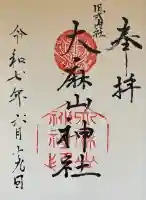 奉拝
旧県社
大麻山神社
令和七年六月十九日